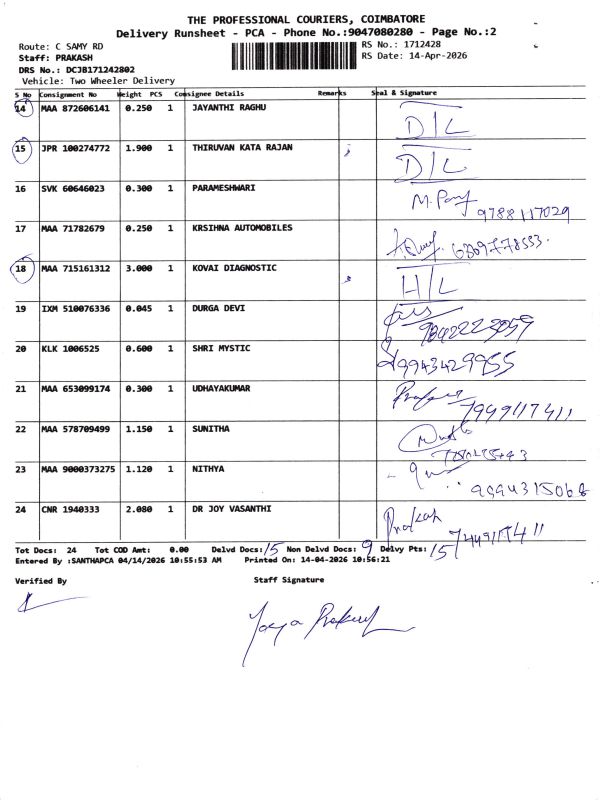 THE PROFESSIONAL COURIERS, COIMBATORE
Delivery Runsheet - PCA - Phone No.:9047080280 - Page No.:2
Route: C SAMY RD RS No.: 1712428
Staff: PRAKASH RS Date: 14-Apr-2026
DRS No.: DCJB171242802
Vehicle: Two Wheeler Delivery
S No Consignment No Weight PCS Consignee Details Remarks Seal & Signature
14 MAA 872606141 0.250 1 JAYANTHI RAGHU D/L
15 JPR 100274772 1.900 1 THIRUVAN KATA RAJAN D/L
16 SVK 60646023 0.300 1 PARAMESHWARI 9788117029
17 MAA 71782679 0.250 1 KRSIHNA AUTOMOBILES
18 MAA 715161312 3.000 1 KOVAI DIAGNOSTIC H/L
19 IXM 510076336 0.045 1 DURGA DEVI
20 KLK 1006525 0.600 1 SHRI MYSTIC 9943429955
21 MAA 653099174 0.300 1 UDHAYAKUMAR
22 MAA 578709499 1.150 1 SUNITHA
23 MAA 9000373275 1.120 1 NITHYA
24 CNR 1940333 2.080 1 DR JOY VASANTHI Prakash
Tot Docs: 24 Tot COD Amt: 0.00 Delvd Docs: 15 Non Delvd Docs: 9 Delvy Pts: 15
Entered By :SANTHAPCA 04/14/2026 10:55:53 AM Printed On: 14-04-2026 10:56:21
Verified By Staff Signature